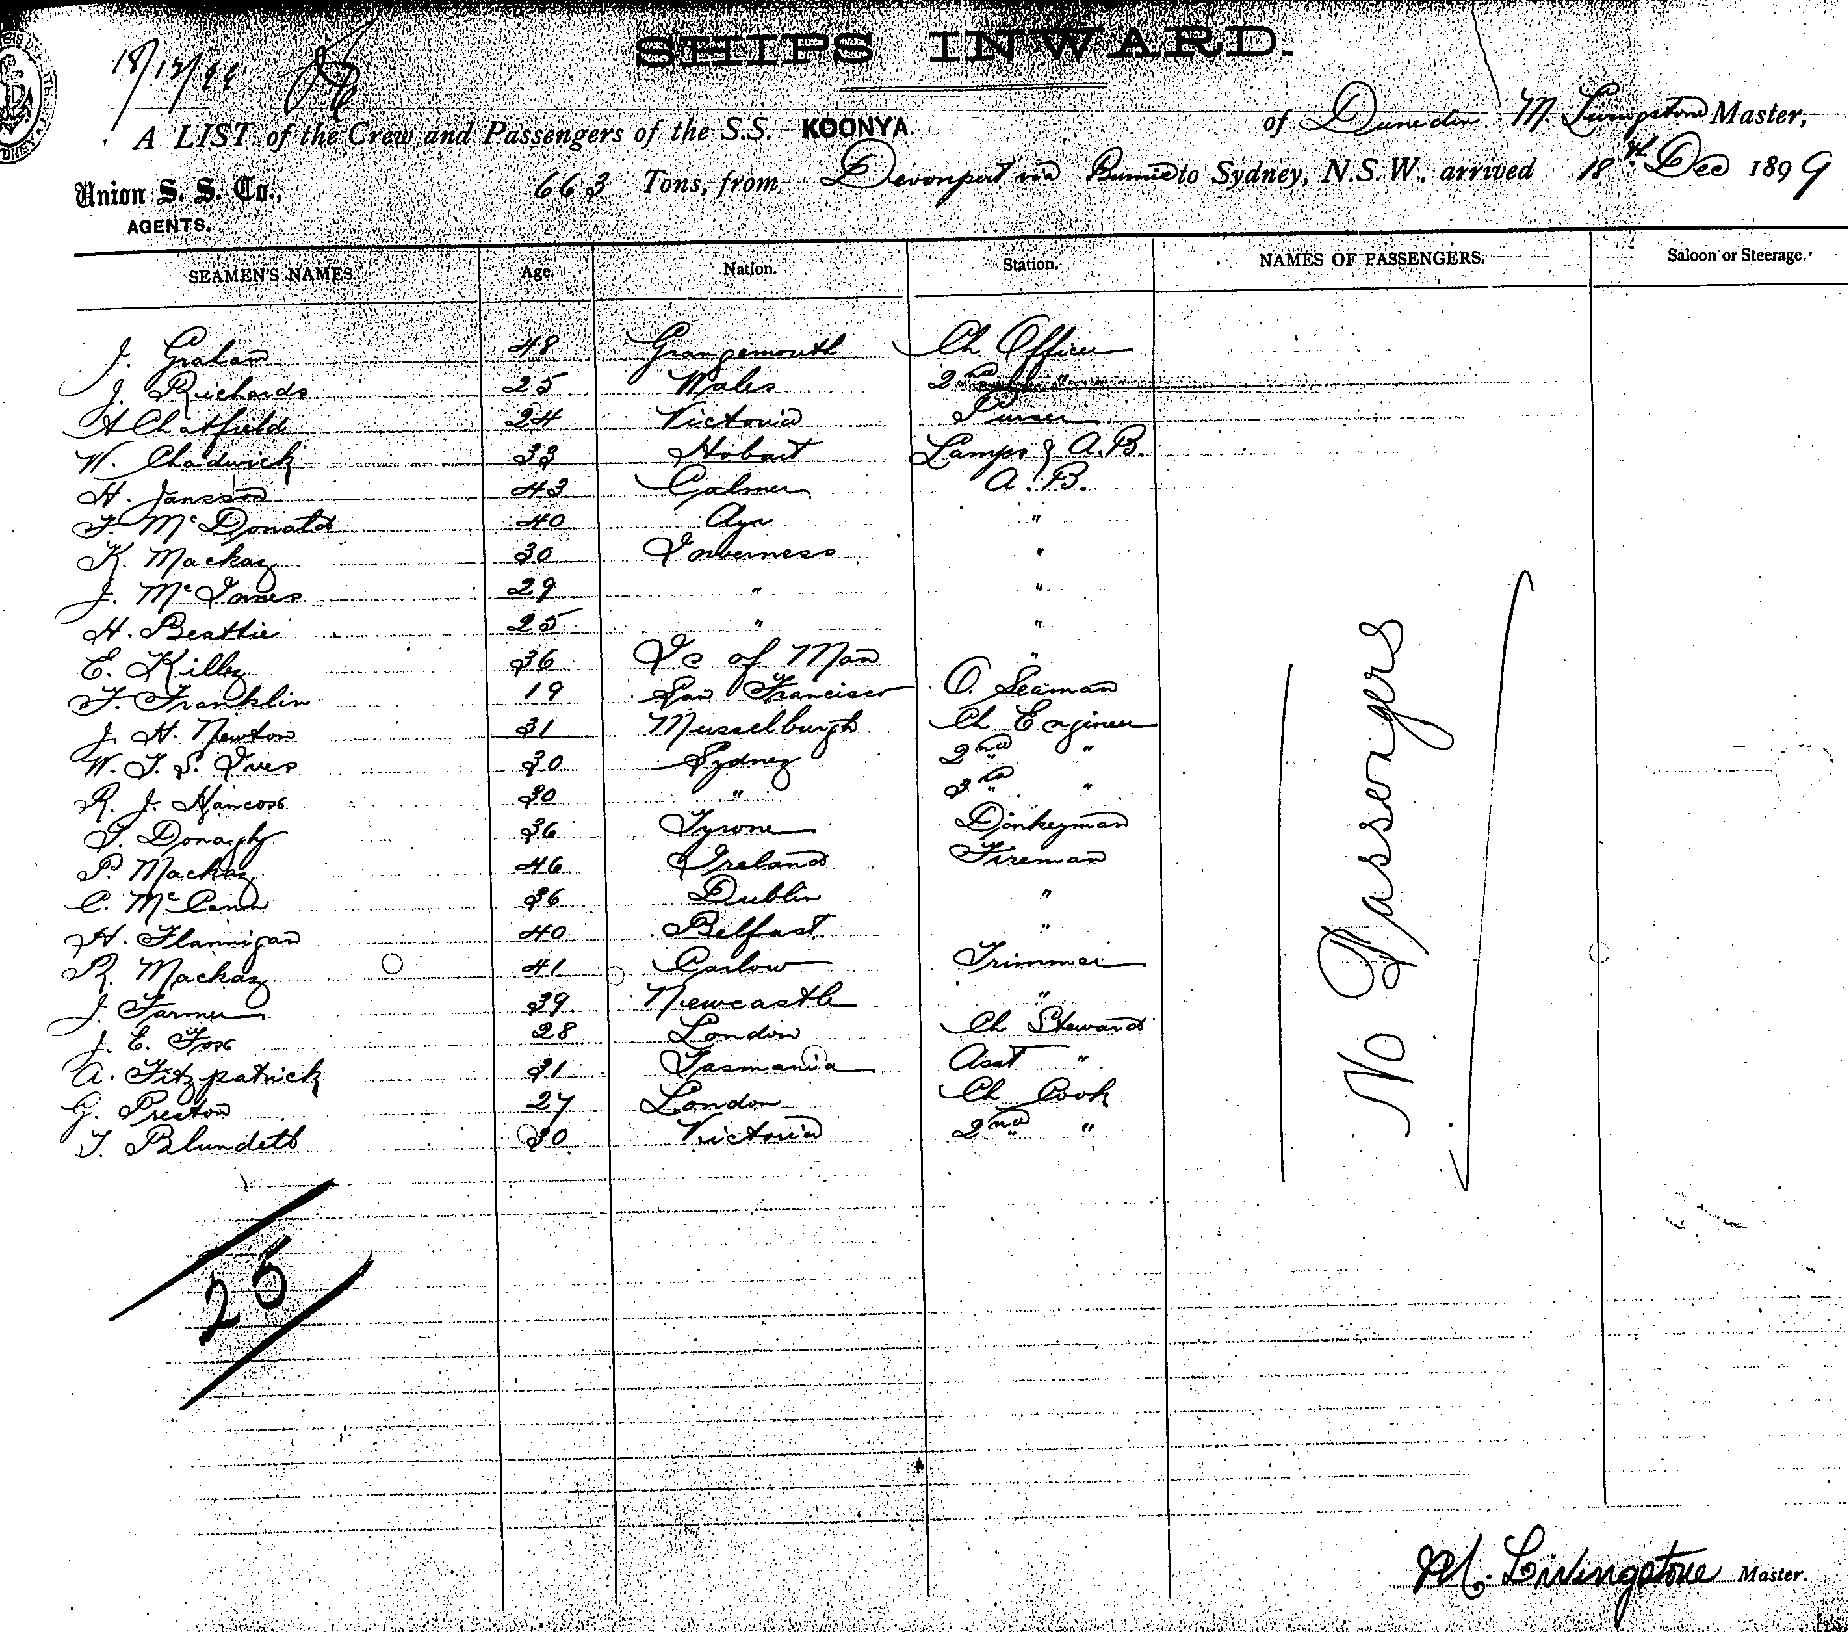 SHIPS INWARD.
18/12/99
A LIST of the Crew and Passengers of the S.S. KOONYA. of Dunedin M. Livingstone Master,
Union S. S. Co., AGENTS. 663 Tons, from Devonport via Burnie to Sydney, N.S.W., arrived 18th Dec 1899
SEAMEN'S NAMES. Age. Nation. Station. NAMES OF PASSENGERS. Saloon or Steerage.
J. Graham 48 Grangemouth Ch Officer
J. Richards 25 Wales 2nd "
H Chatfield 24 Victoria Purser
W. Chadwick 33 Hobart Lamps & A.B.
H. Jansson 43 Calmer A.B.
F. McDonald 40 Ayr "
K. Mackay 30 Inverness "
J. McInnes 29 " "
H. Beattie 25 " "
E. Killey 36 Is of Man "
F. Franklin 19 San Francisco O. Seaman
J. H. Newton 31 Musselburgh Ch Engineer
W. T. S. Ives 30 Sydney 2nd "
R. J. Hancox 30 " 3rd "
T. Donaghy 36 Tyrone Donkeyman
P. Mackay 46 Ireland Fireman
C. McCann 36 Dublin "
H. Flannigan 40 Belfast "
R. Mackay 41 Carlow Trimmer
J. Farmer 39 Newcastle "
J. E. Fox 28 London Ch Steward
A. Fitzpatrick 31 Tasmania Asst "
G. Preston 27 London Ch Cook
T. Blundell 30 Victoria 2nd "
No Passengers
25
M. Livingstone Master.